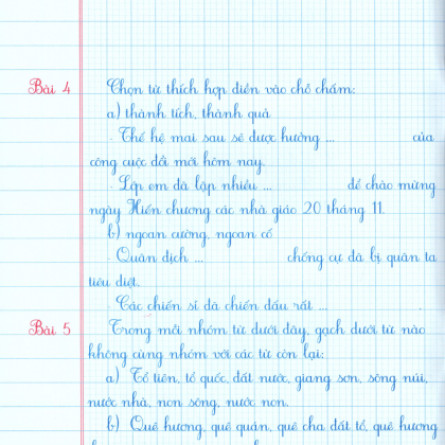 Bài 4 Chọn từ thích hợp điền vào chỗ chấm:
a) thành tích, thành quả
- Thế hệ mai sau sẽ được hưởng ... của
công cuộc đổi mới hôm nay.
- Lớp em đã lập nhiều ... để chào mừng
ngày Hiến chương các nhà giáo 20 tháng 11.
b) ngoan cường, ngoan cố
- Quân địch ... chống cự đã bị quân ta
tiêu diệt.
- Các chiến sĩ đã chiến đấu rất ... .
Bài 5 Trong mỗi nhóm từ dưới đây, gạch dưới từ nào
không cùng nhóm với các từ còn lại:
a) Tổ tiên, tổ quốc, đất nước, giang sơn, sông núi,
nước nhà, non sông, nước non.
b) Quê hương, quê quán, quê cha đất tổ, quê hương